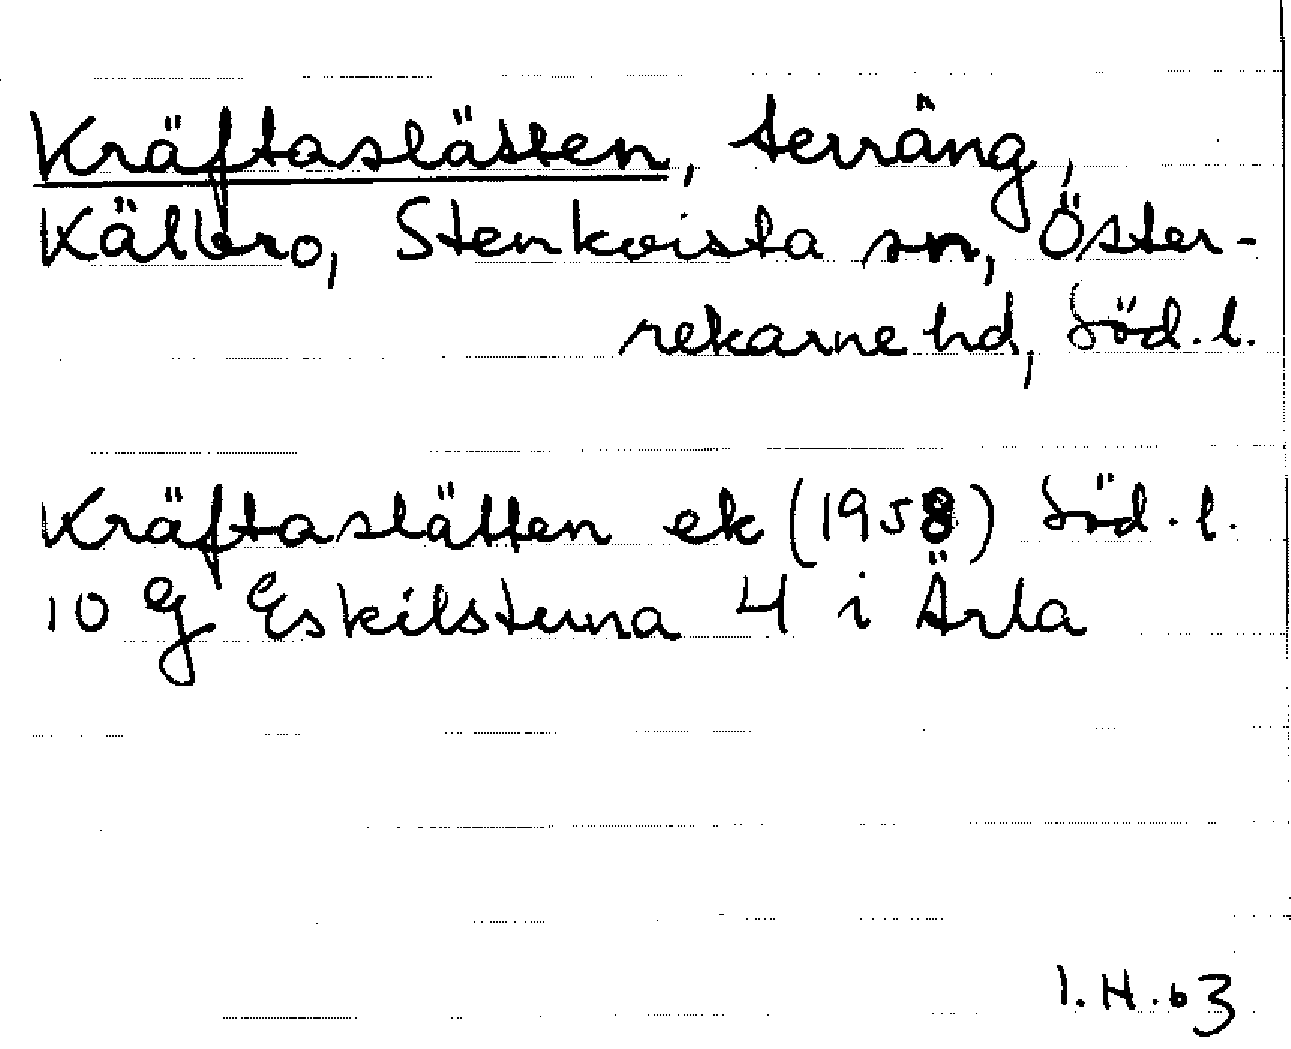 Kräftaslätten, terräng,
Källbro, Stenkvista sn, Öster-
rekarne hd, Söd. l.
Kräftaslätten ek (1958) Söd. l.
10 g Eskilstuna 4 i Ärla
I. H. 63